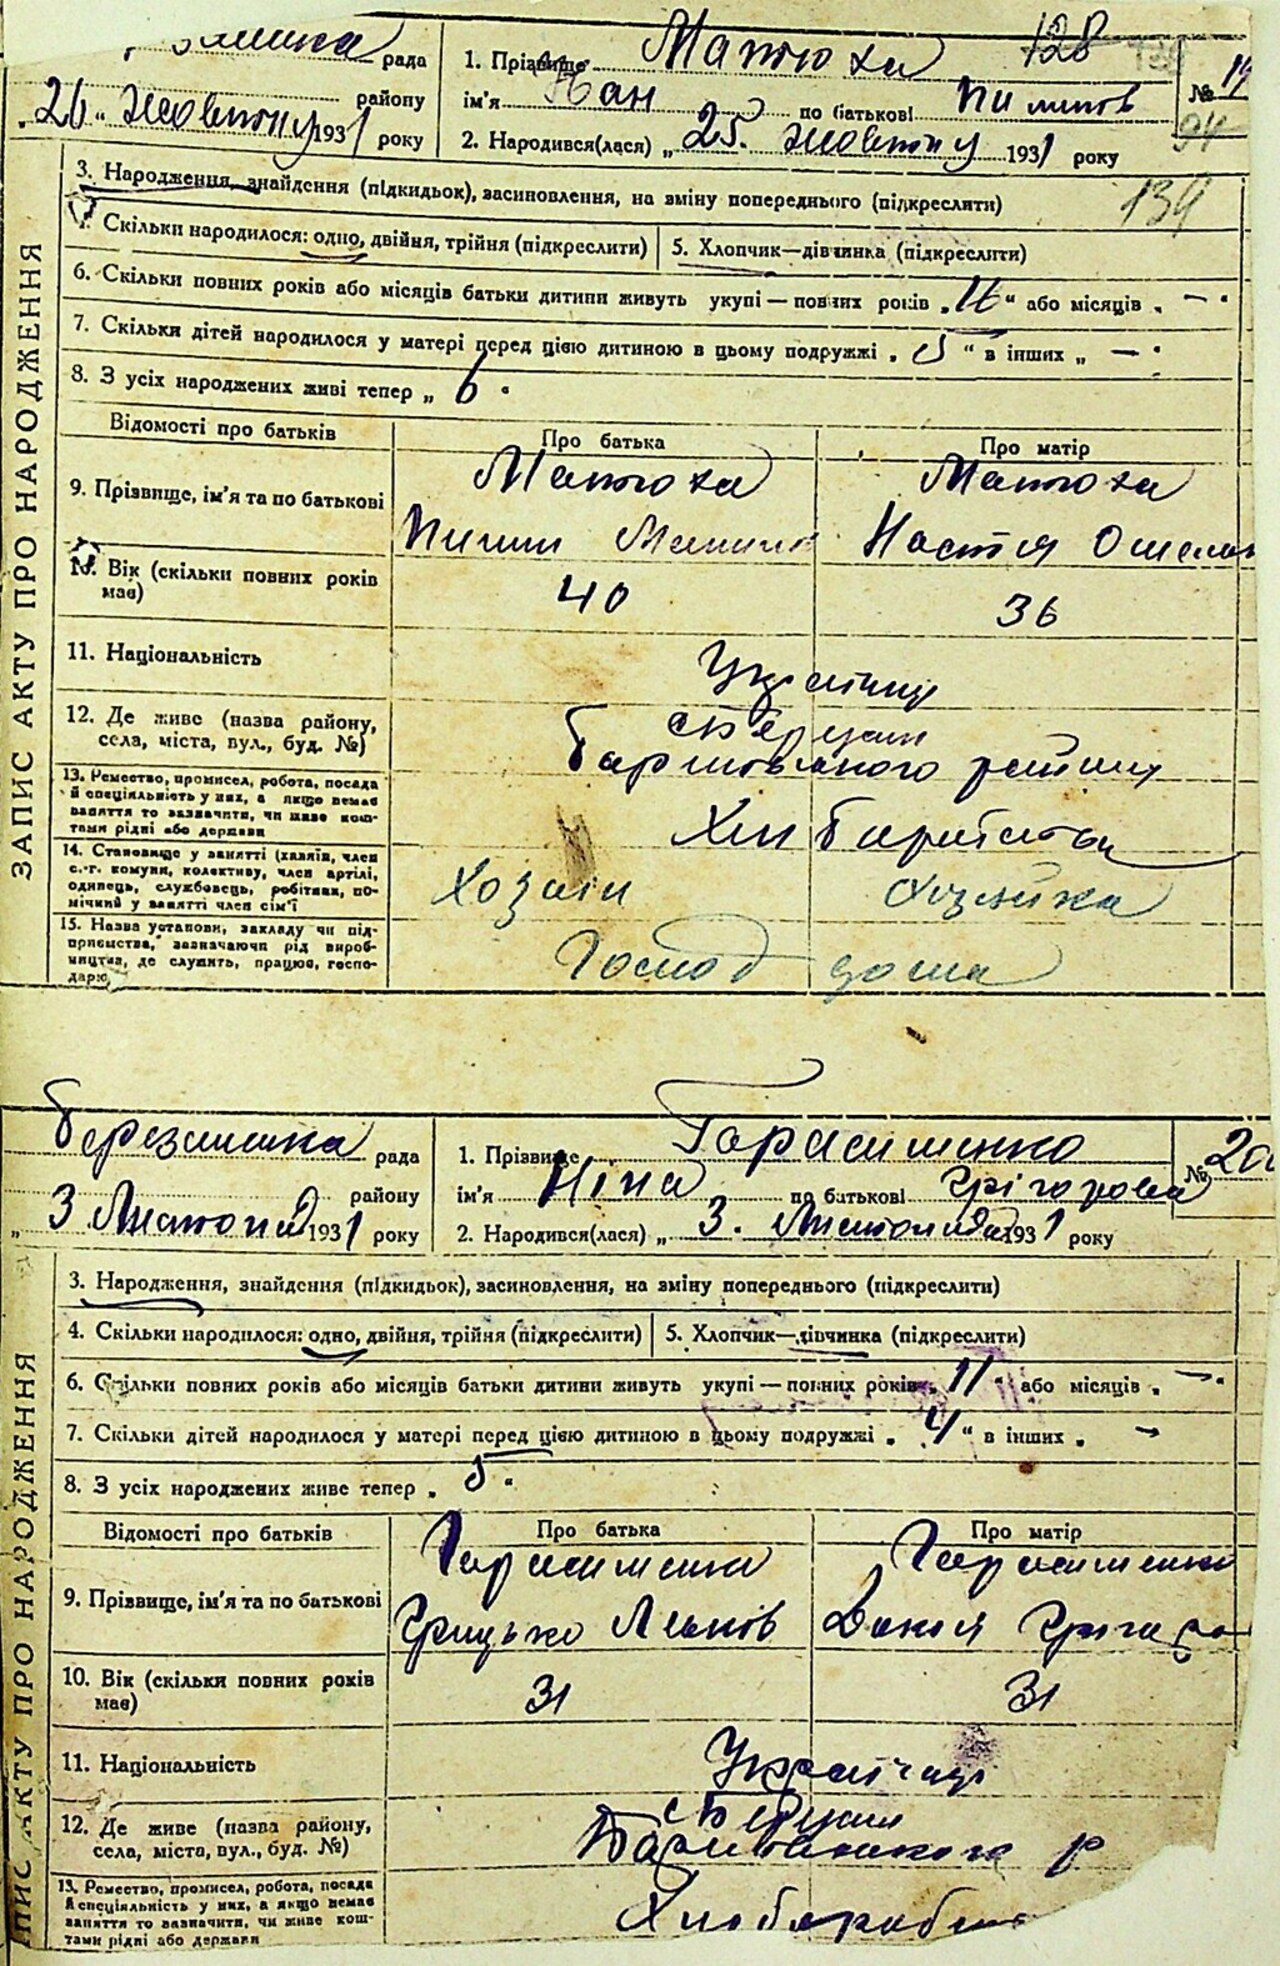 рада
району
„26“ жовтня 1931 року
1. Прізвище Матюха 128
ім'я Іван по батькові Пилипов
2. Народився(лася) „25. жовтня 1931 року
№ 19
94
139
ЗАПИС АКТУ ПРО НАРОДЖЕННЯ
3. Народження, знайдення (підкидьок), засиновлення, на зміну попереднього (підкреслити)
Скільки народилося: одно, двійня, трійня (підкреслити) 5. Хлопчик—дівчинка (підкреслити)
6. Скільки повних років або місяців батьки дитини живуть укупі — повних років „16“ або місяців „—“
7. Скільки дітей народилося у матері перед цією дитиною в цьому подружжі „5“ в інших „—“
8. З усіх народжених живі тепер „6“
Відомості про батьків Про батька Про матір
Матюха Матюха
9. Прізвище, ім'я та по батькові
Пилип Настя
10. Вік (скільки повних років має) 40 36
11. Національність Українці
12. Де живе (назва району, села, міста, вул., буд. №)
району
13. Ремество, промисел, робота, посада
й спеціяльність у них, а якщо немає
заняття то зазначити, чи живе кош-
тами рідні або держави
Хліборобство
14. Становище у занятті (хазяїн, член
с.-г. комуни, колективу, член артілі,
одинець, службовець, робітник, по-
мічний у занятті член сім'ї
Хозяїн Хозяйка
15. Назва установи, закладу чи під-
приємства, зазначаючи рід вироб-
ництва, де служить, працює, госпо-
дарює
Господ дома
рада
району
„3 Листопада 1931 року
1. Прізвище Гарасименко
ім'я Ніна по батькові Грігорова
2. Народився(лася) „3. Листопада 1931 року
№ 20
ЗАПИС АКТУ ПРО НАРОДЖЕННЯ
3. Народження, знайдення (підкидьок), засиновлення, на зміну попереднього (підкреслити)
4. Скільки народилося: одно, двійня, трійня (підкреслити) 5. Хлопчик—дівчинка (підкреслити)
6. Скільки повних років або місяців батьки дитини живуть укупі — повних років „11“ або місяців „—“
7. Скільки дітей народилося у матері перед цією дитиною в цьому подружжі „4“ в інших „—
8. З усіх народжених живе тепер „5“
Відомості про батьків Про батька Про матір
Гарасименко Гарасименко
9. Прізвище, ім'я та по батькові
Грицько Леонів
10. Вік (скільки повних років має) 31 31
11. Національність Українці
12. Де живе (назва району, села, міста, вул., буд. №)
р
13. Ремество, промисел, робота, посада
й спеціяльність у них, а якщо немає
заняття то зазначити, чи живе кош-
тами рідні або держави
Хліборобство